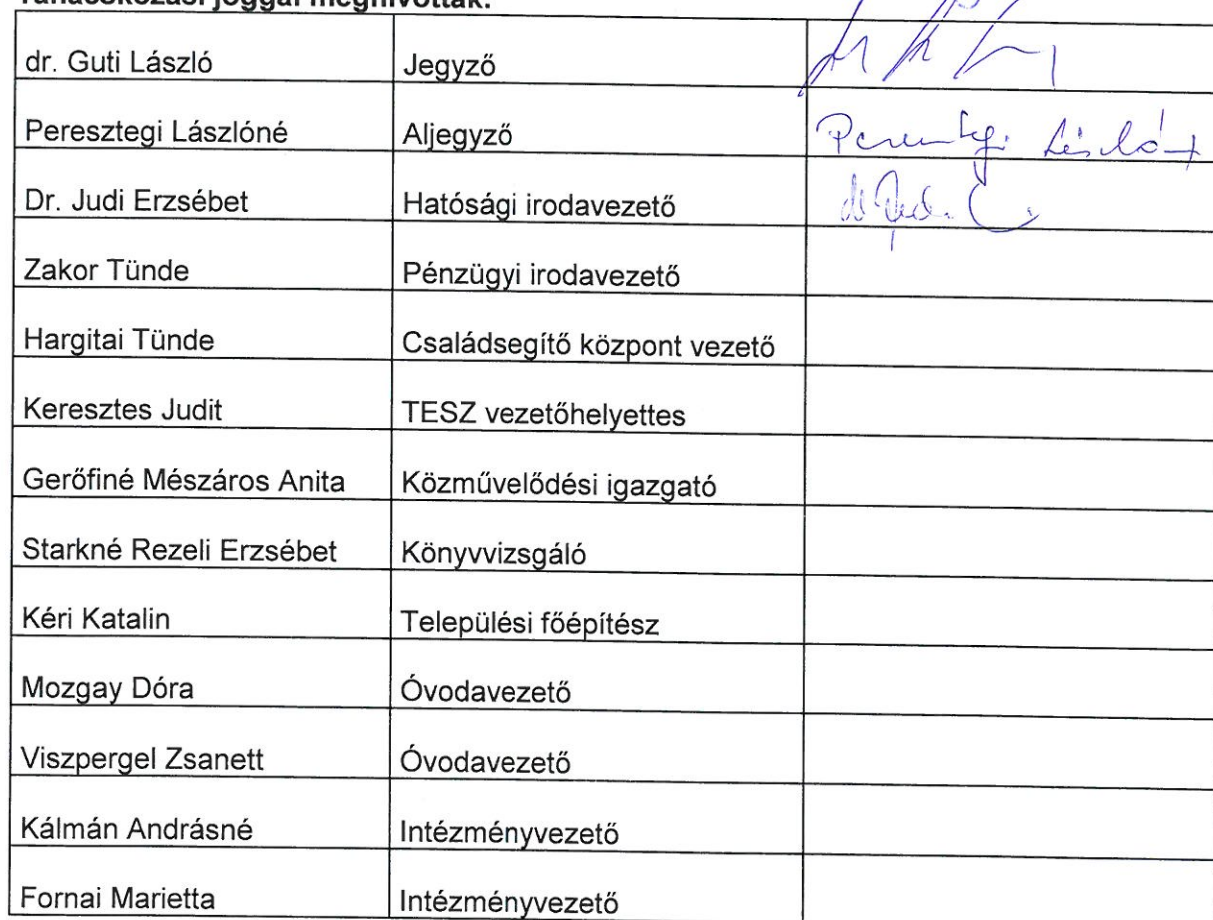 Tanácskozási joggal meghívottak:
dr. Guti László Jegyző
Peresztegi Lászlóné Aljegyző Peresztegi Lászlóné
Dr. Judi Erzsébet Hatósági irodavezető
Zakor Tünde Pénzügyi irodavezető
Hargitai Tünde Családsegítő központ vezető
Keresztes Judit TESZ vezetőhelyettes
Gerőfiné Mészáros Anita Közművelődési igazgató
Starkné Rezeli Erzsébet Könyvvizsgáló
Kéri Katalin Települési főépítész
Mozgay Dóra Óvodavezető
Viszpergel Zsanett Óvodavezető
Kálmán Andrásné Intézményvezető
Fornai Marietta Intézményvezető